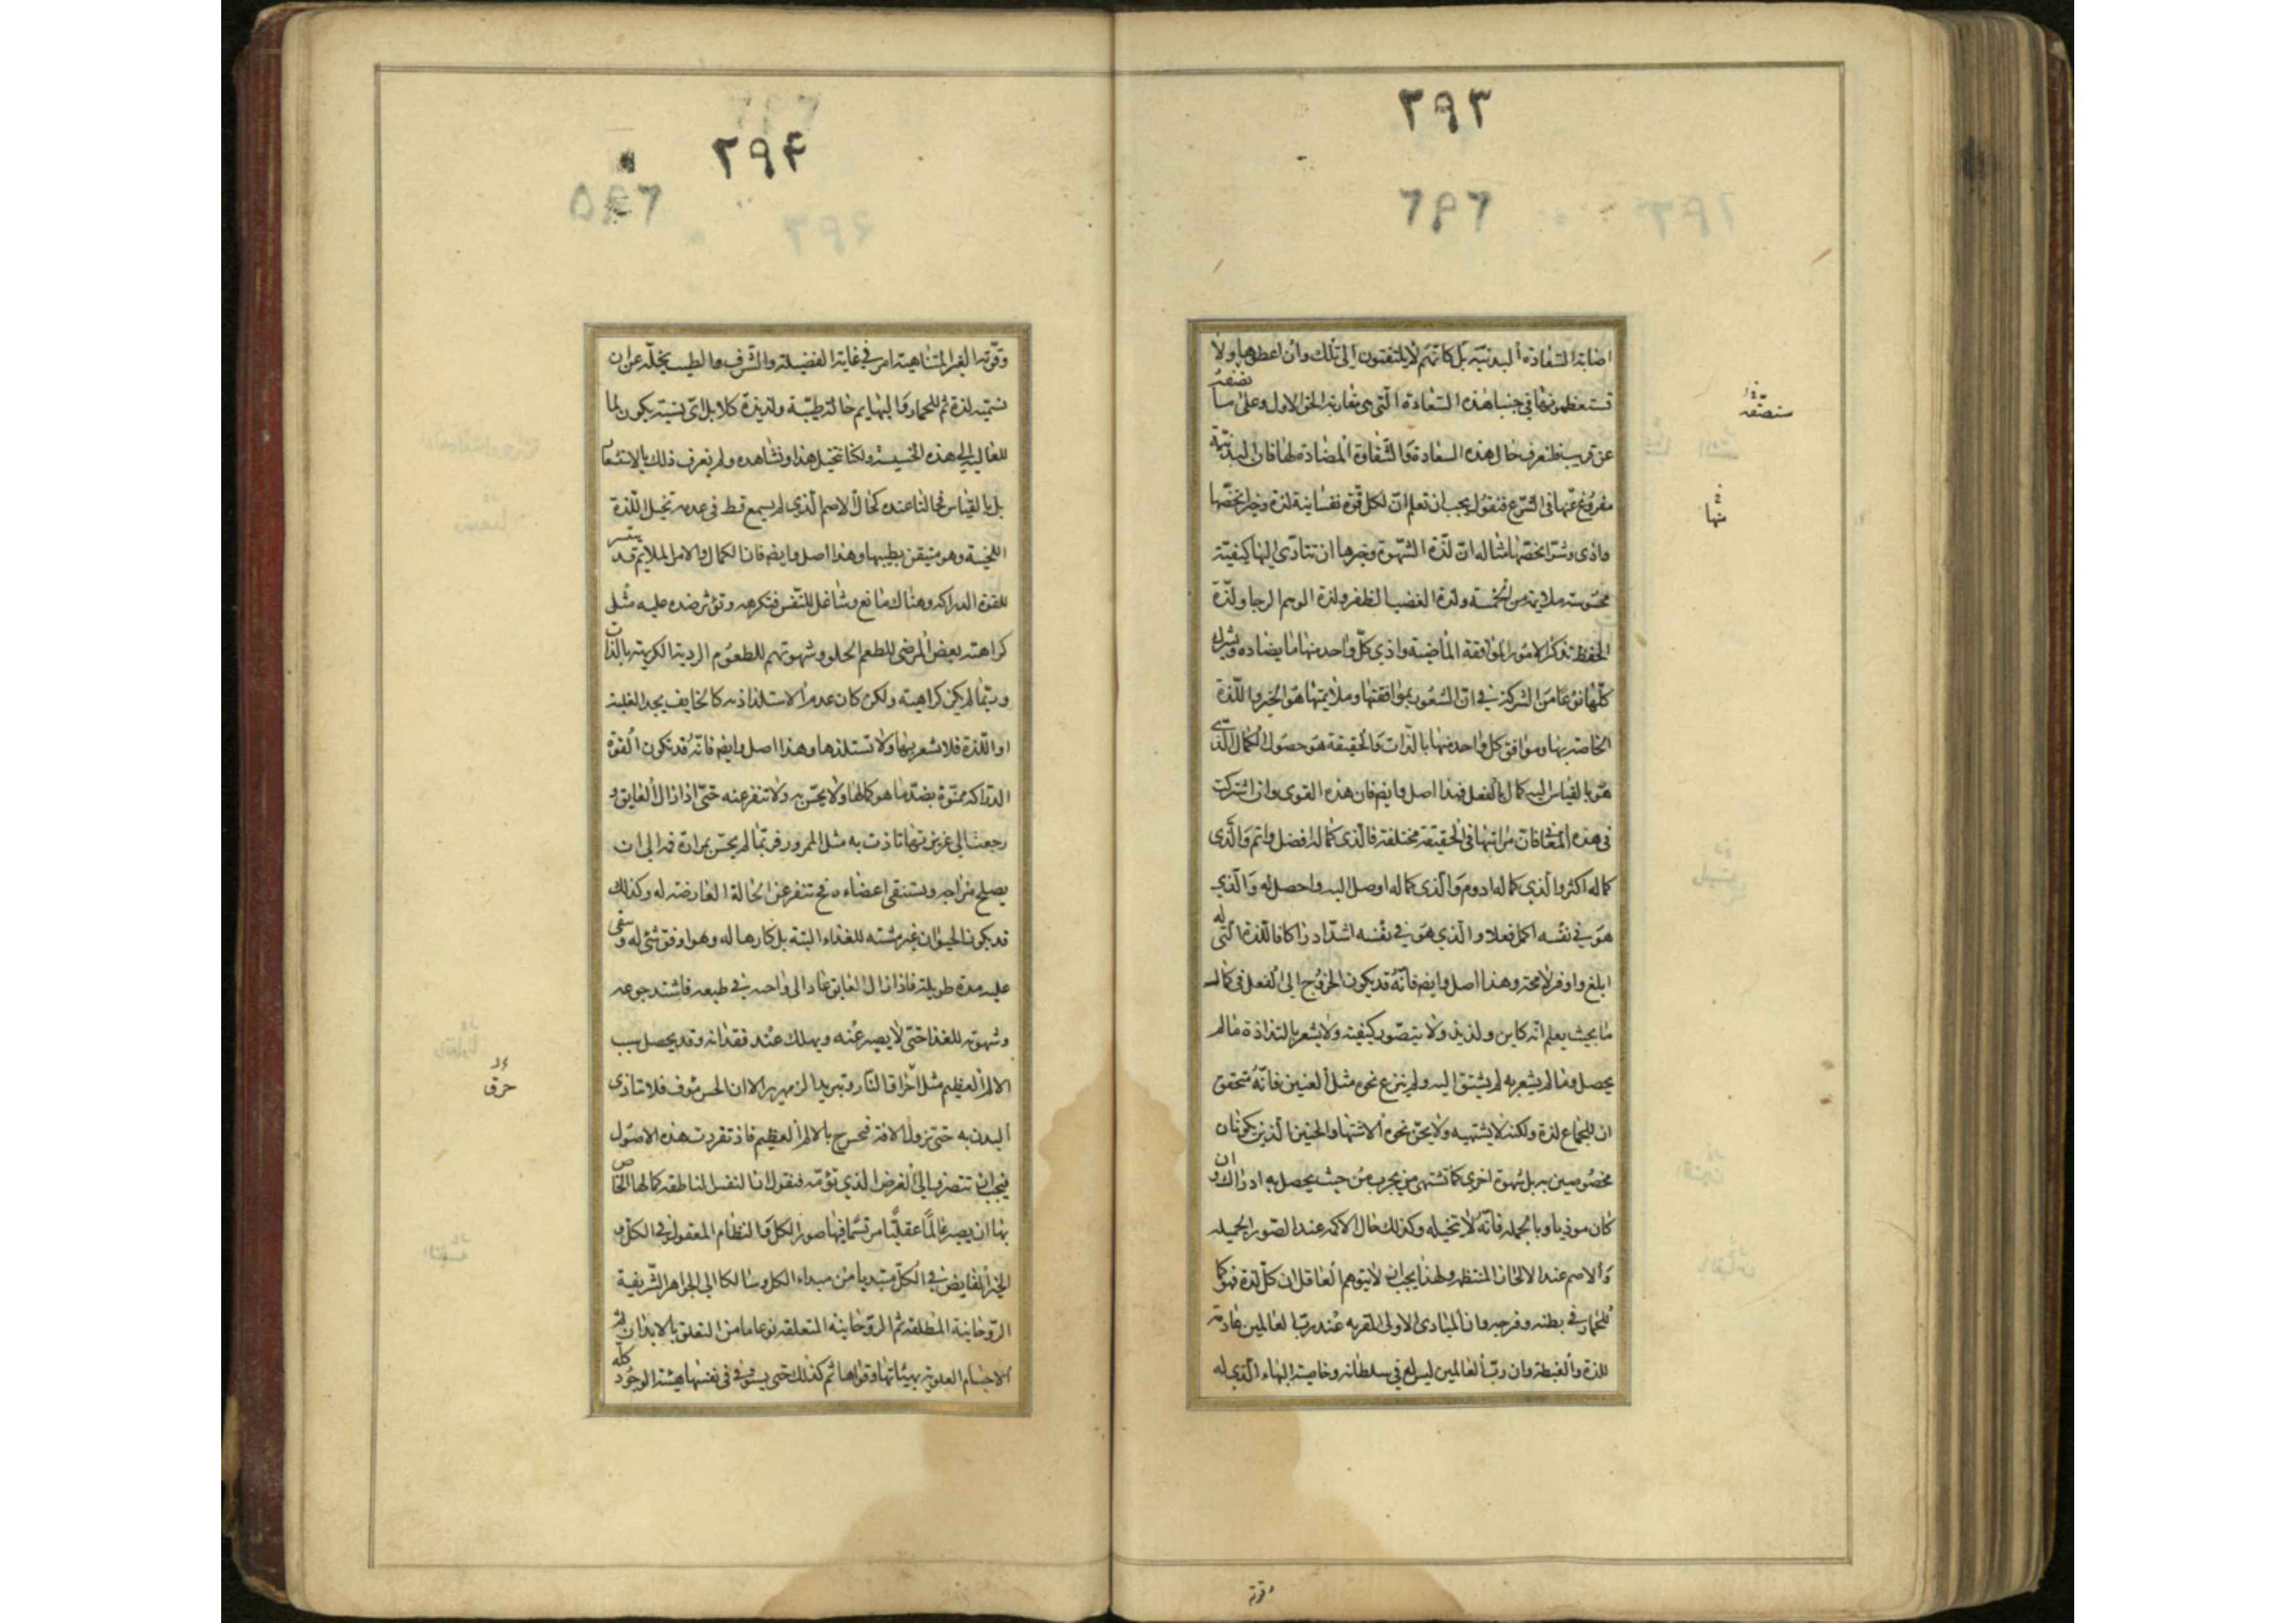 ٢٩٣
٢٩٢
اصابة السعادة البدنية بل كانهم لا يلتفتون الى تلك وان اعطوها ولا
تستعظمونها في جنب هذه السعادة التي هى مقاربة الحق الاول وعلى ما نصفه
عن قريب فلنعرف حال هذه السعادة والشقاوة المضادة لها فان البدنية
مفروغ عنها في الشرع فنقول يجب ان تعلم ان لكل قوة نفسانية لذة وخيرا يخصها
واذى وشرا يخصها مثاله ان لذة الشهوة وخيرها ان تتادى اليها كيفية
محسوسة ملايمة من الخمسة ولذة الغضب الظفر ولذة الوهم الرجا ولذة
الحفظ تذكر الامور الموافقة الماضية واذى كل واحد منها ما يضاده ويشترك
كلها نوعا من الشركة في ان الشعور بموافقتها وملايمتها هو الخير واللذة
الخاصة بها وموافق كل واحد منها بالذات والحقيقة هو حصول الكمال الذى
هو بالقياس اليه كمال بالفعل فهذا اصل وايضه فان هذه القوى وان اشتركت
في هذه المعانى فان مراتبها في الحقيقة مختلفة فالذي كماله افضل واتم والذى
كماله اكثر والذي كماله ادوم والذى كماله اوصل اليه واحصل له والذي
هو في نفسه اكمل فعلا والذي هو في نفسه اشد ادراكا فاللذة التى له
ابلغ واوفر لا محة وهذا اصل وايضه فانه قد يكون الخروج الى الفعل في كمال
ما بحيث يعلم انه كاين ولذيذ ولا يتصور كيفيته ولا يشعر بالتذاذه مالم
يحصل وما لم يشعر به لم يشتق اليه ولم ينزع نحوه مثل العنين فانه متحقق
ان للجماع لذة ولكنه لا يشتهيه ولا يحن نحوه الاشتها والحنين الذين يكونان
مخصوصين به بل شهوة اخرى كما تشتهى من يجرب من حيث يحصل به ادراك وان
كان موذيا وبالجمله فانه لا تخيله وكذلك حال الاكمه عند الصور الجميله
والاصم عند الالحان المنتظمه ولهذا يجب ان لا يتوهم العاقل ان كل لذة فهو كما
للحمار في بطنه وفرجه وان المبادى الاولى المقربه عند رب العالمين عادمة
للذة والغبطة وان رب العالمين ليس له في سلطانه وخاصية البهاء الذي له
منها
وقوته
٢٩٤
وقوته الغير المتناهية امر في غاية الفضيلة والشرف والطيب يجله عن ان
نسميه لذة ثم للحمار والبهايم حالة طيبة ولذيذة كلا بل اى نسبة يكون لما
للعالية الى هذه الخسيسة ولكنا نتخيل هذا ونشاهده ولم نعرف ذلك بالاستشعار
بل بالقياس فحالنا عنده كحال الاصم الذي لم يسمع قط في عدمه تخيل اللذة
اللحنية وهو متيقن بطيبها وهذا اصل وايضه فان الكمال والامر الملايم قد يتيسر
للقوة الدراكه وهناك مانع وشاغل للنفس فتكرهه وتؤثر ضده عليه مثل
كراهته بعض المرضى للطعم الحلو وشهوتهم للطعوم الردية الكريهة بالذات
وربما لم يكن كراهيته ولكن كان عدم الاستلذاذ به كالخايف يجد الغلبة
او اللذة فلا شعر بها ولا تستلذها وهذا اصل وايضه فانه قد تكون القوة
الدراكه ممنوة بضد ما هو كمالها ولا يحس به ولا تنفر عنه حتى اذا زال العايق و
رجعت الى غريزتها تاذت به مثل الممرور فربما لم يحس بمرارة فمه الى ان
يصلح مزاجه ويستنقى اعضاءه فح تنفر عن الحالة العارضة له وكذلك
قد يكون الحيوان غير مشته للغذاء البتة بل كارها له وهو اوفق شئ له وسقى
عليه مدة طويلة فاذا زال العايق عاد الى واجبه في طبعه فاشتد جوعه
وشهوته للغذا حتى لا يصبر عنه ويهلك عند فقدانه وقد يحصل سبب
الالم العظيم مثل احراق النار وتبريد الزمهرير الا ان الحس مؤوف فلا تاذى
البدن به حتى تزول الافة فيحس ح بالالم العظيم فاذ تقررت هذه الاصول
فيجب ان تنصرف الى الغرض الذي نؤمه فنقول ان النفس الناطقه كمالها الخاص
بها ان يصير عالما عقليا مرتسما فيها صور الكل والنظام المعقول في الكل و
الخير الفايض في الكل مبتديا من مبداء الكل وسالكا الى الجواهر الشريفة
الروحانية المطلقه ثم الروحانية المتعلقه نوعا ما من التعلق بالابدان ثم
الاجسام العلوية بهيئاتها وقواها ثم كذلك حتى يستوفى في نفسها هيئة الوجود كله
حرق